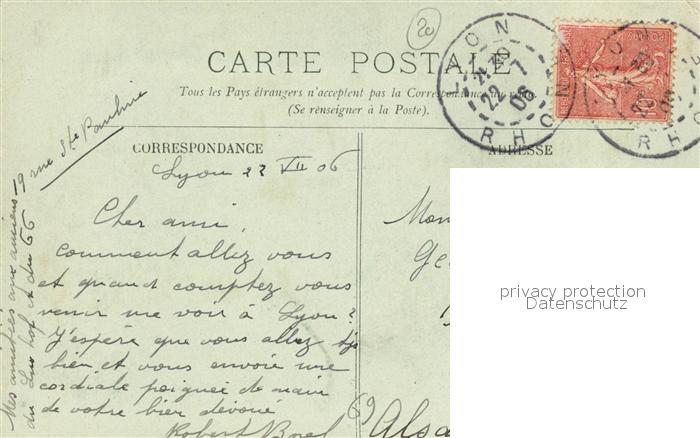 20
CARTE POSTALE
Tous les Pays étrangers n'acceptent pas la Correspondance au verso
(Se renseigner à la Poste).
LYON
22-7
06
RHONE
CORRESPONDANCE
ADRESSE
9 rue Ste Pauline
Lyon 22 VII 06
Cher ami,
comment allez vous
et quand comptez vous
venir me voir à Lyon?
J'espère que vous allez tjs
bien et vous envoie une
cordiale poignée de main
de votre bien dévoué
Robert
Mes amitiées aux anciens
du et du 66
Mon
Ge
69
Alsa
privacy protection
Datenschutz